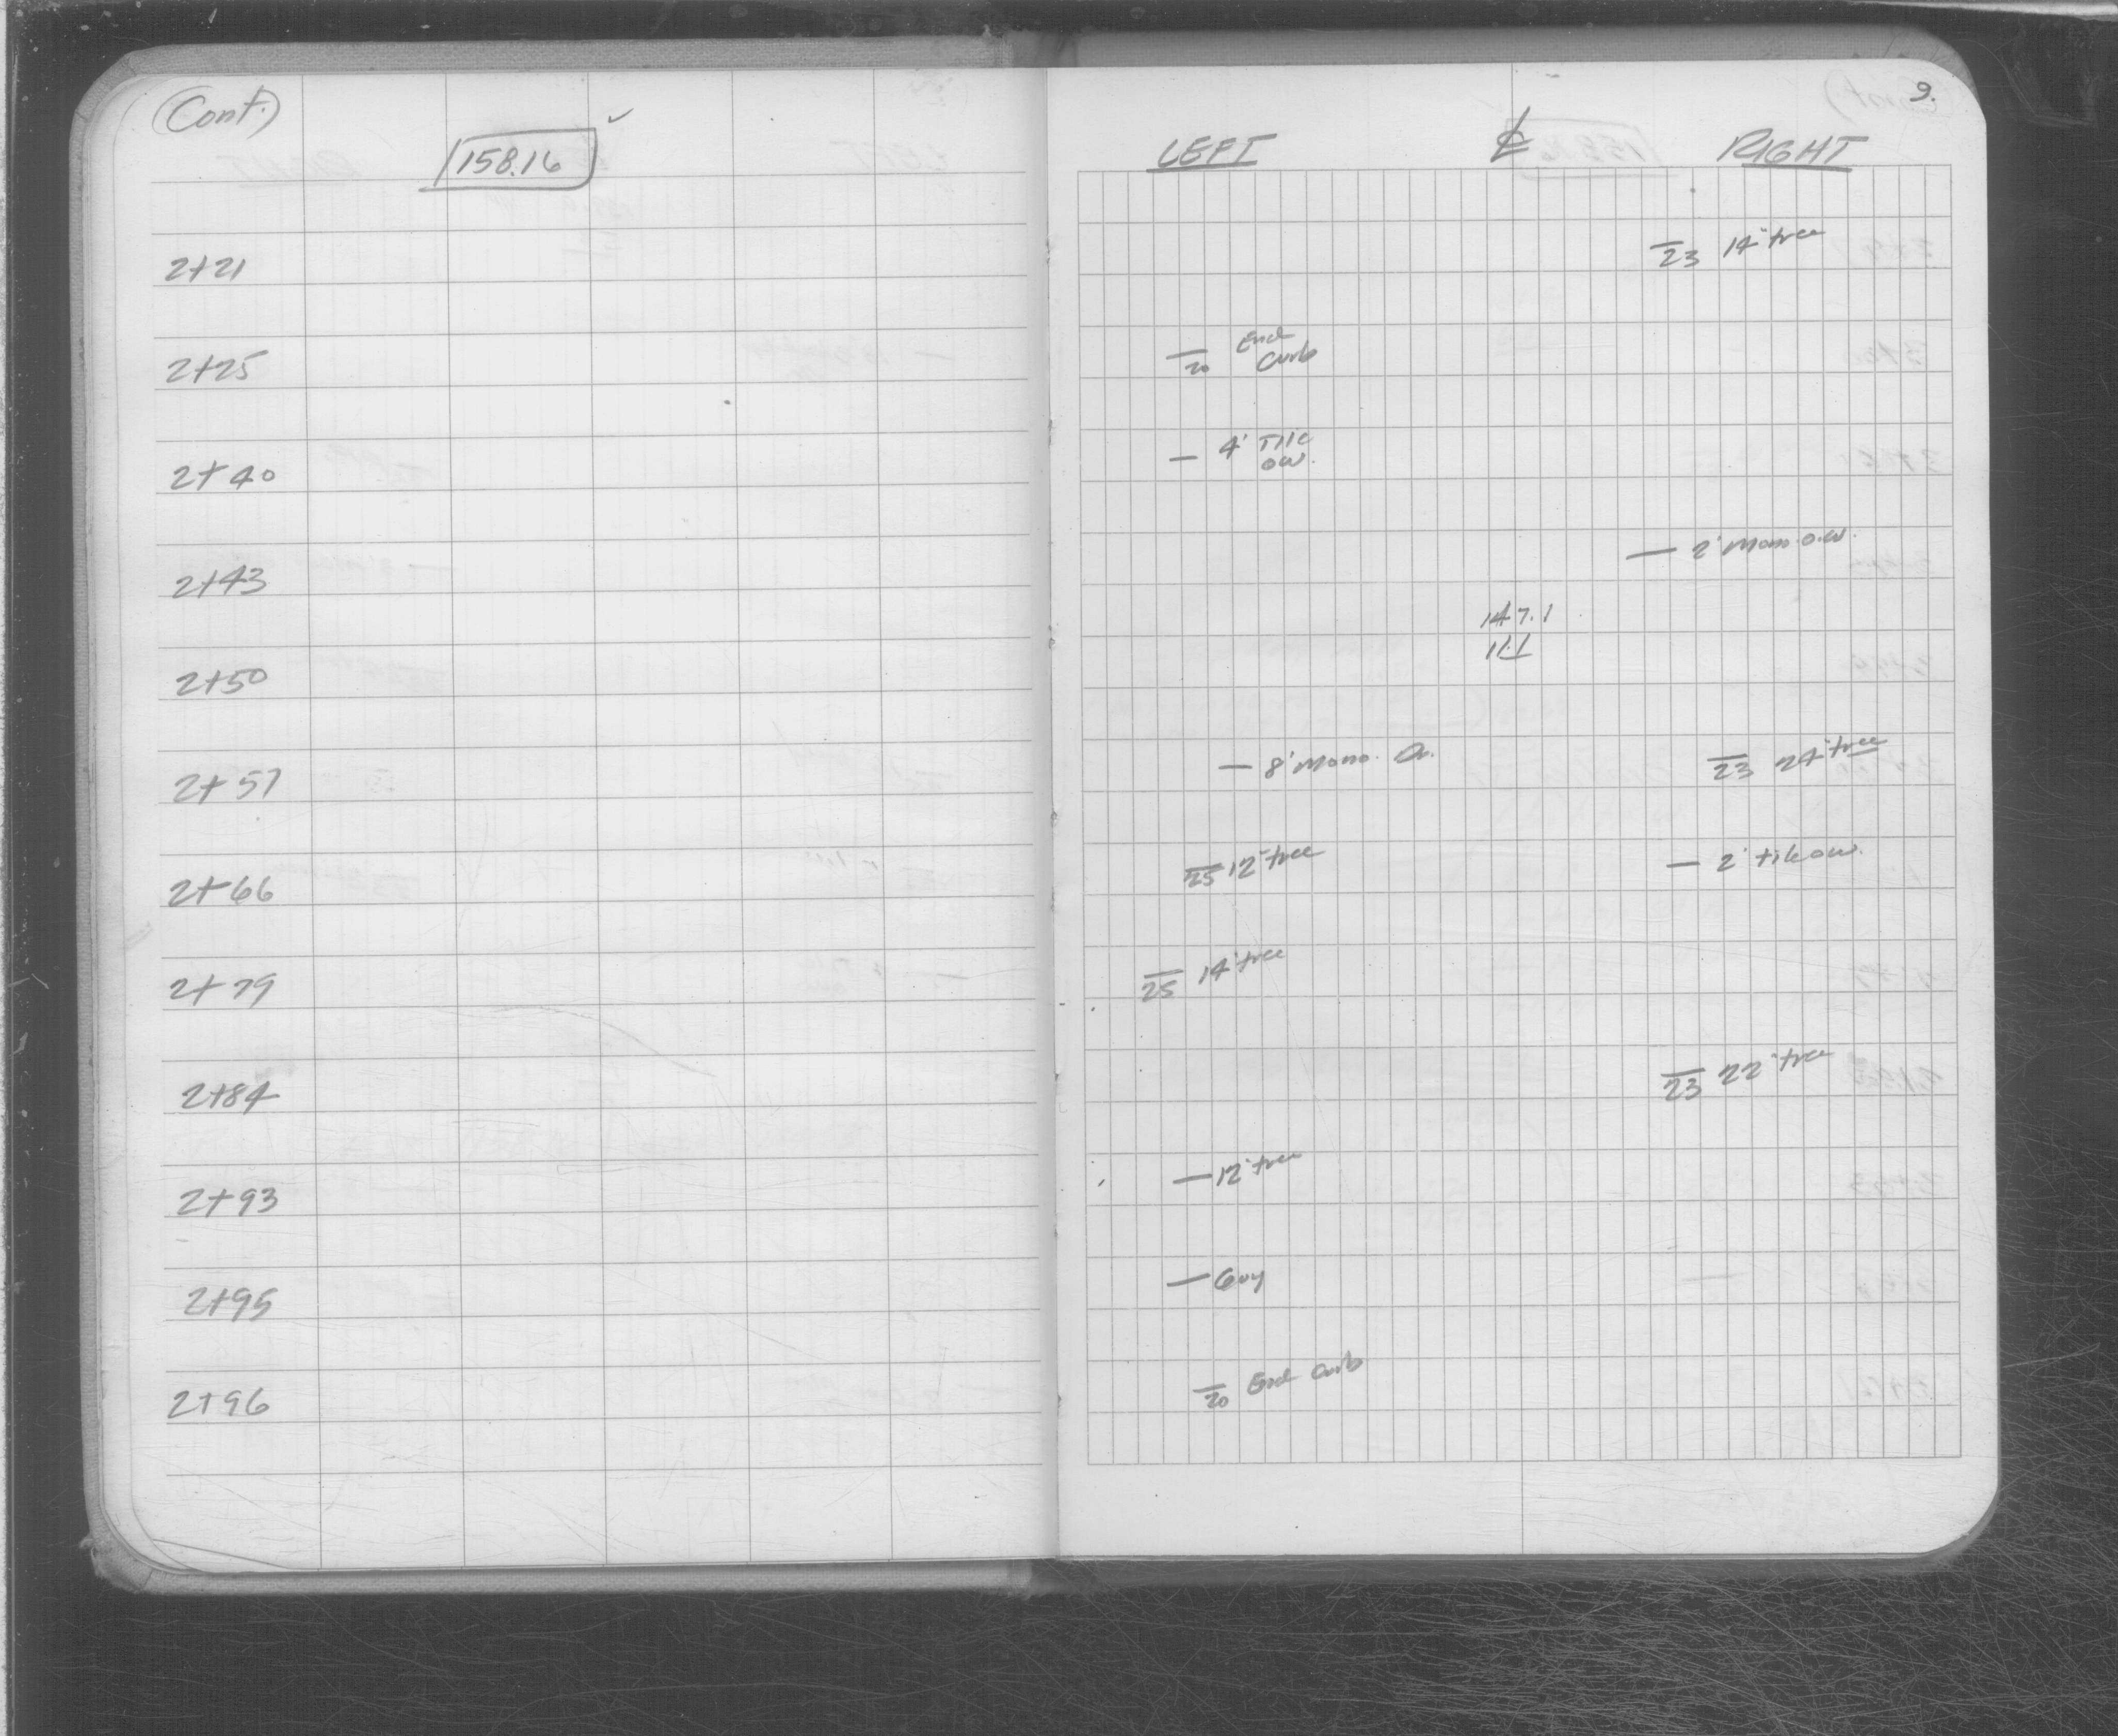 (Cont.)
158.16 ✓
9.
LEFT ℄ RIGHT
2+21 — 23 14" tree
2+25 — 20 End
Curb
2+40 — 4' Tile
ow.
2+43 — 2' Mono. o.w.
147.1
2+50 11.1
2+57 — 8' Mono. — 23 24" tree
2+66 — 25 12" tree — 2' tile ow.
2+79 — 25 14" tree
2+84 — 23 22" tree
2+93 — 12" tree
2+95 — Guy
2+96 — 20 End Curb